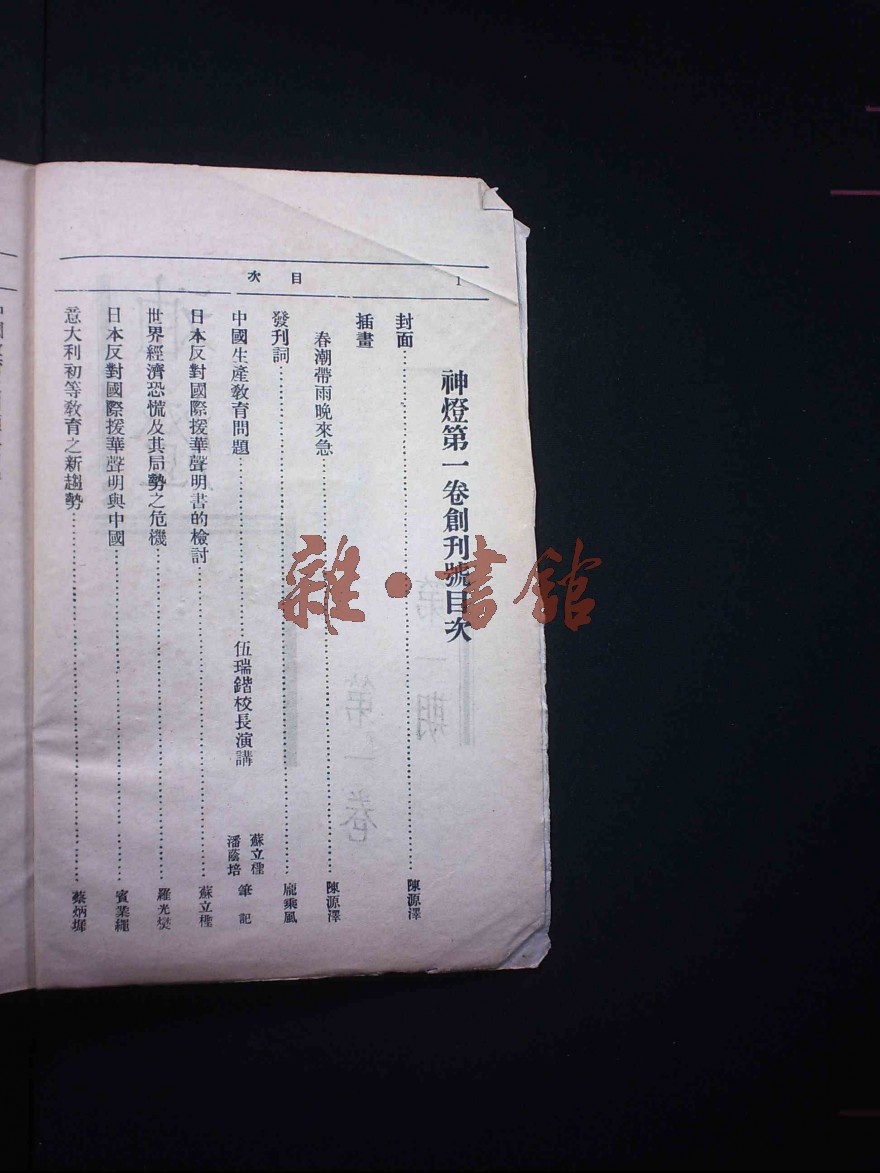 目次
1
神燈第一卷創刊號目次
封面……陳源澤
插畫
春潮帶雨晚來急……陳源澤
發刊詞……龐乘風
中國生產教育問題……伍瑞鍇校長演講 蘇立樫 潘蔭培 筆記
日本反對國際援華聲明書的檢討……蘇立樫
世界經濟恐慌及其局勢之危機……羅光燊
日本反對國際援華聲明與中國……賓業繩
意大利初等教育之新趨勢……蔡炳墀
雜·書館
第一期
第一卷